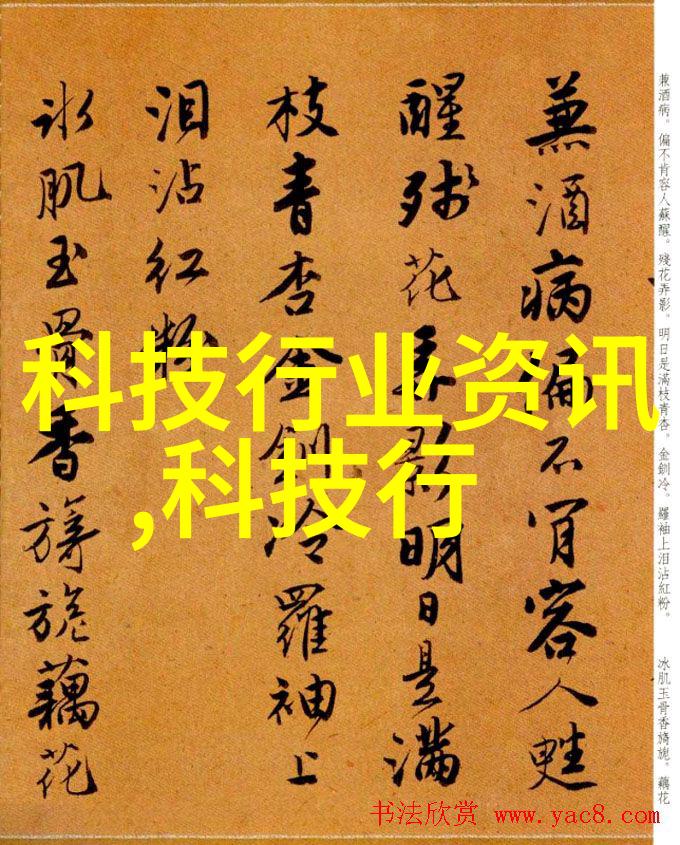 兼酒病。偏不肯容人蘇醒。殘花弄影。明日是滿枝青杏。金釧冷。羅袖上泪沾紅粉。　冰肌玉骨香旖旎。藕花
兼酒病偏不肯容人甦
醒殘花弄影明日是滿
枝青杏金釧冷羅袖上
泪沾紅粉
冰肌玉骨香旖旎藕花
科技行业资讯
,科技行
书法欣赏 www.yac8.com